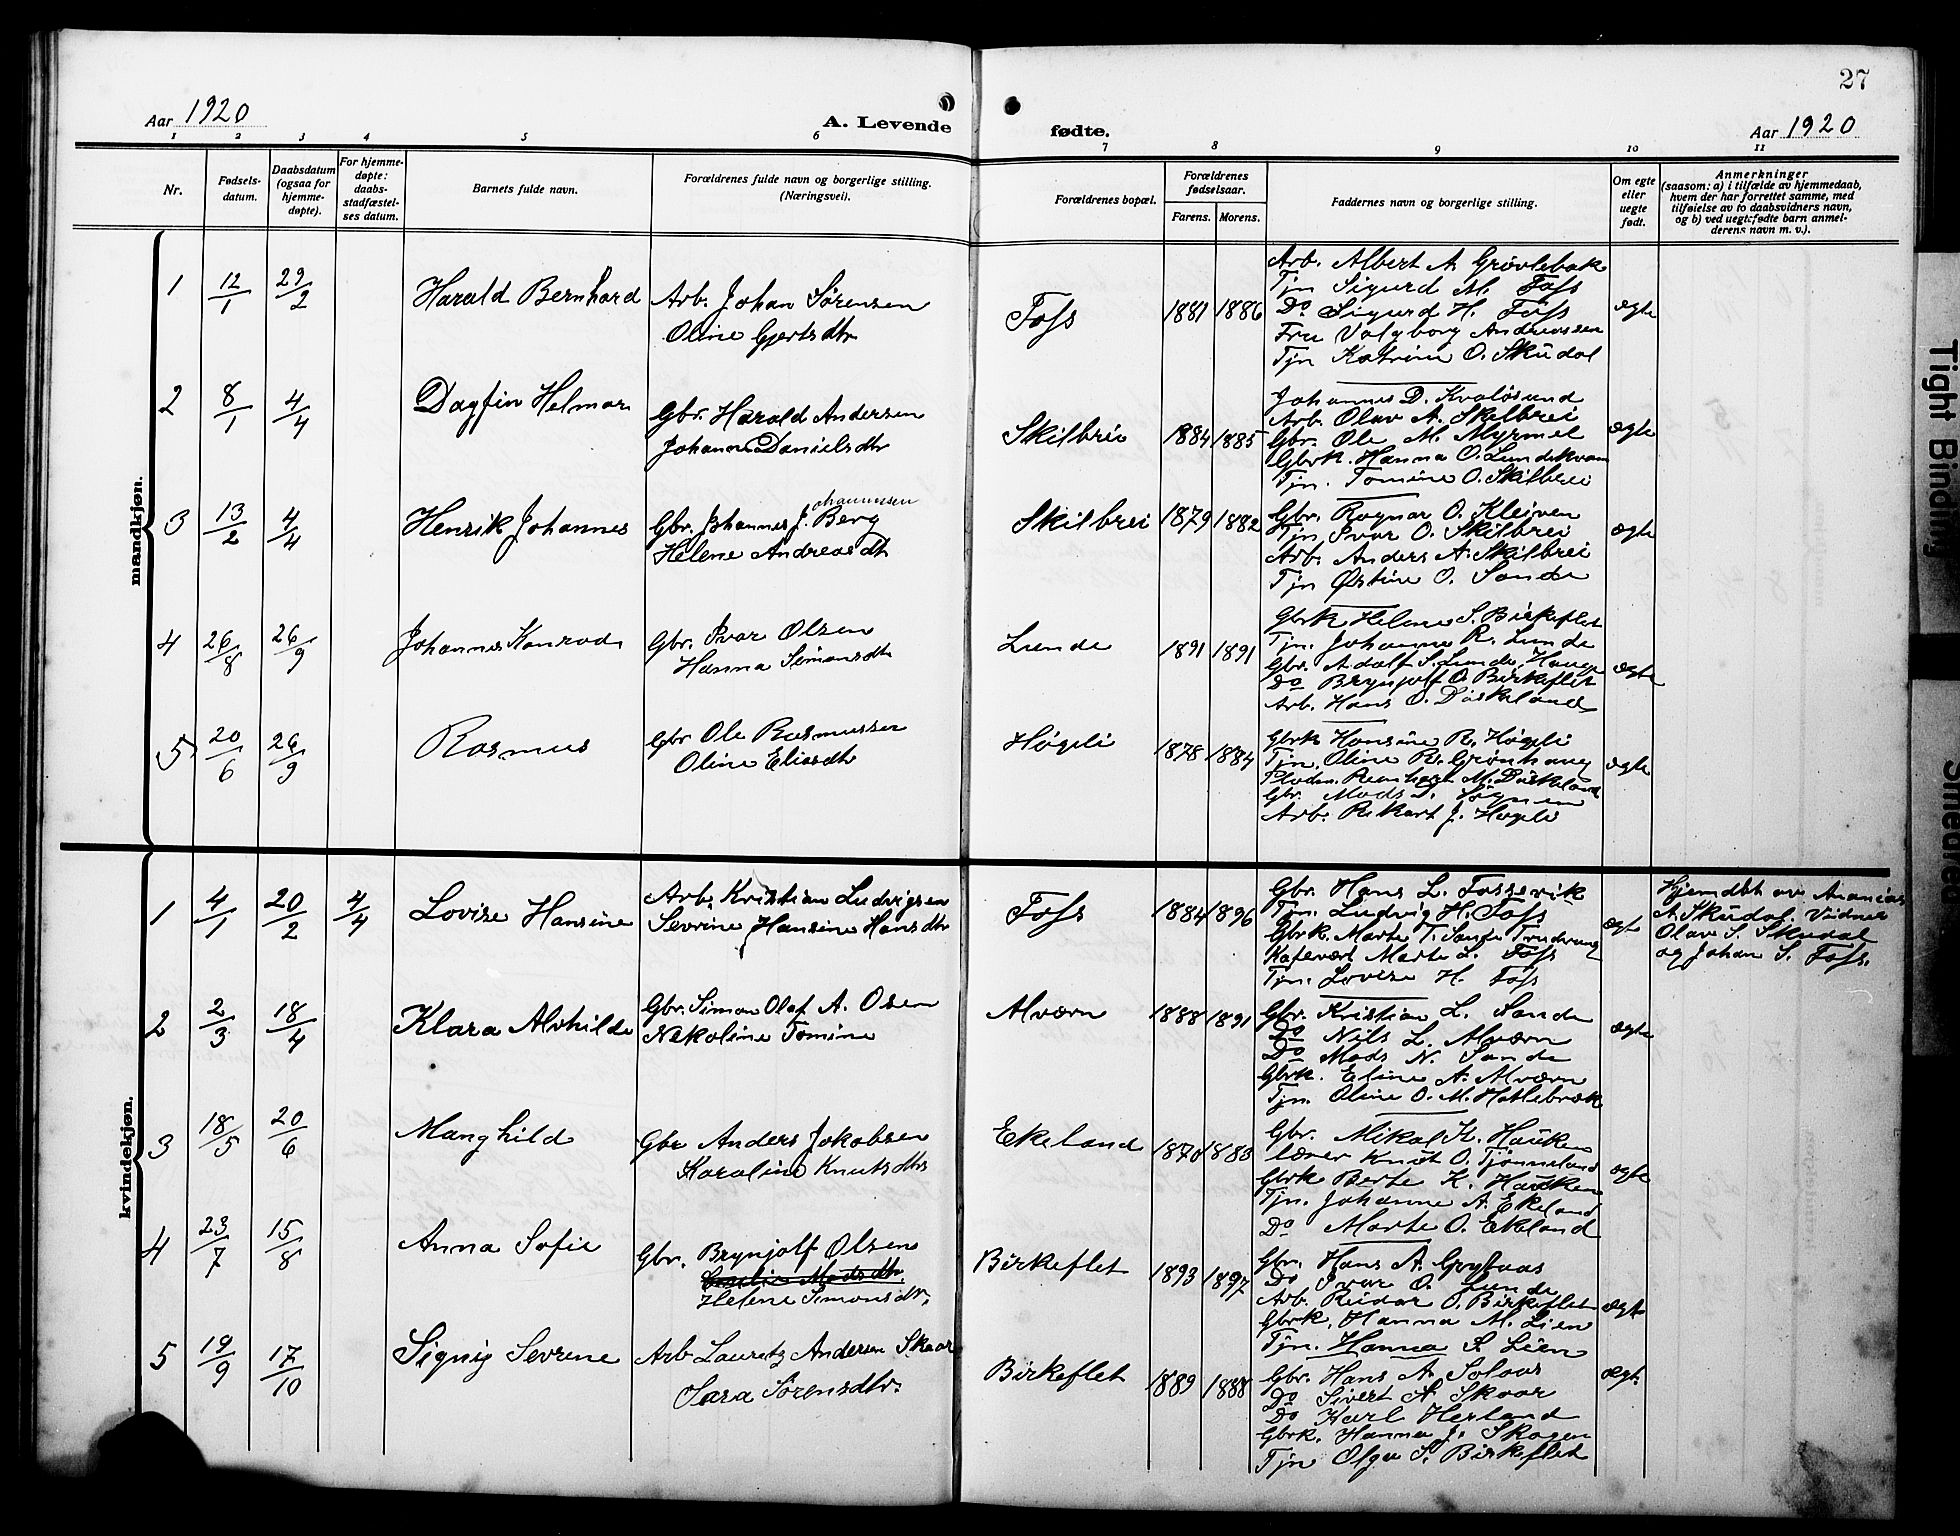 27
Aar 1920
A. Levende
fødte.
Aar 1920
1 2 3 4 5 6 7 8 9 10 11
Nr.
Fødsels-
datum.
Daabsdatum
(ogsaa for
hjemme-
døpte).
For hjemme-
døpte:
daabs-
stadfæstel-
ses datum.
Barnets fulde navn.
Forældrenes fulde navn og borgerlige stilling.
(Næringsvei).
Forældrenes bopæl.
Forældrenes
fødselsaar.
Farens. Morens.
Faddernes navn og borgerlige stilling.
Om egte
eller
uegte
født.
Anmerkninger
(saasom: a) i tilfælde av hjemmedaab,
hvem der har forrettet samme, med
tilføielse av to daabsvidners navn,
og b) ved uegtefødte barn anmel-
derens navn m. v.).
mandkjøn.
1 12/1 29/2 Harald Bernhard
Arb. Johan Sørensen
Oline Gjertsdtr
Foss 1881 1886
Arb. Albert A. Grøvlebak
Tjn Sigurd M. Foss
Do Sigurd H. Foss
Fru Valgborg Andreassen
Tjn Katrine O. Skudal
ægte
2 8/1 4/4 Dagfin Helmar
Gbr. Harald Andersen
Johanne Danielsdtr
Skilbrei 1884 1885
Johannes D. Kvaløsund
Arb. Olav A. Skilbrei
Gbr. Ole M. Myrmel
Gbrk. Hanna O. Lundekvam
Tjn. Tomine O. Skilbrei
ægte
3 13/2 4/4 Henrik Johannes
Gbr. Johannes J. Berg
ohannessen
Helene Andreasdtr
Skilbrei 1879 1882
Gbr. Ragnar O. Kleiven
Tjn Ivar O. Skilbrei
Arb. Anders A. Skilbrei
Tjn Østine O. Sande
ægte
4 26/8 26/9 Johannes Konrad
Gbr. Ivar Olsen
Hanna Simonsdtr
Lunde 1891 1891
Gbrk Helene S. Birkeflet
Tjn. Johanna R. Lunde
Gbr. Adolf S. Lunde, Hauge
Do Brynjolf O. Birkeflet
Arb. Hans O. Dåskeland
ægte
5 20/6 26/9 Rasmus
Gbr Ole Rasmussen
Oline Eliasdtr
Høgeli 1878 1884
Gbrk Hansine R. Høgeli
Tjn. Oline R. Grønhaug
Reinhart M.
Gbr. Mads D.
Arb. Rikart J. Høgeli
ægte
kvindekjøn.
1 4/1 20/2 4/4 Lovise Hansine
Arb. Kristian Ludvigsen
Sevrine Hansine Hansdtr
Foss 1884 1896
Gbr. Hans L. Fossevik
Tjn. Ludvig H. Foss
Gbrk. Marte T. Sande
Kafevært Marte L. Foss
Tjn. Lovise H. Foss
ægte
Hjemdbt av Ananias
A. Skudal. Vidner
Olav S. Skudal
og Johan S. Foss.
2 2/3 18/4 Klara Alvhilde
Gbr. Simon Olaf A. Osen
Nikoline Tomine
Alværn 1888 1891
Gbr. Kristian L. Sande
Do Nils L. Alværn
Do Mads N. Sande
Gbrk. Eline A. Alværn
Tjn. Oline O. M. Hatlebrek
ægte
3 18/5 20/6 Manghild
Gbr Anders Jakobsen
Karoline Knutsdtr
Ekeland 1870 1883
Gbr. Mikal K. Hauken
lærer Knut O. Tjønneland
Gbrk Berte K. Hauken
Tjn. Johanne A. Ekeland
Do Marte O. Ekeland
ægte
4 23/7 15/8 Anna Sofie
Gbr. Brynjolf Olsen
Helene Simonsdtr.
Birkeflet 1893 1897
Gbr. Hans A. Grytaas
Do Ivar O. Lunde
Arb. Reidar O. Birkeflet
Gbrk. Hanna M. Lien
Tjn. Hanna S. Lien
ægte
5 19/9 17/10 Signy Sevrine
Arb Lauritz Andersen Skaar
Sara Sørensdtr.
Birkeflet 1889 1888
Gbr. Hans A. Solaas
Do Sivert A. Skaar
Do Karl Herland
Gbrk. Hanna J. Skogen
Tjn Olga S. Birkeflet
ægt.
Tight Binding